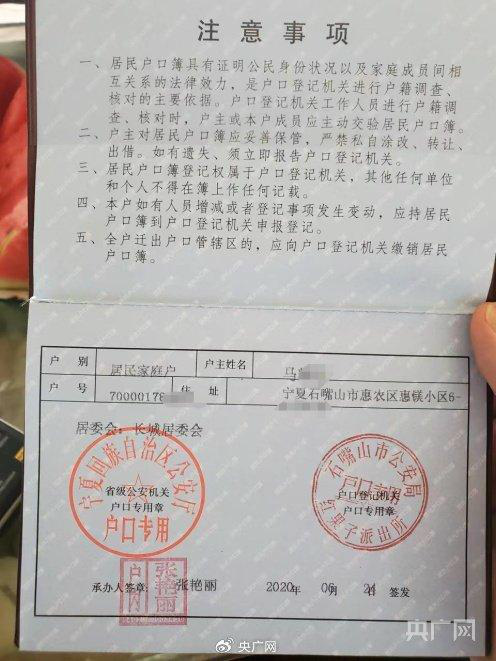 注意事项
一、居民户口簿具有证明公民身份状况以及家庭成员间相
互关系的法律效力，是户口登记机关进行户籍调查、
核对的主要依据。户口登记机关工作人员进行户籍调
查、核对时，户主或本户成员应主动交验居民户口簿。
二、户主对居民户口簿应妥善保管，严禁私自涂改、转让、
出借。如有遗失、须立即报告户口登记机关。
三、居民户口簿登记权属于户口登记机关，其他任何单位
和个人不得在簿上作任何记载。
四、本户如有人员增减或者登记事项发生变动，应持居民
户口簿到户口登记机关申报登记。
五、全户迁出户口管辖区的，应向户口登记机关缴销居民
户口簿。
户 别 居民家庭户 户主姓名 马
户 号 70000178 住 址 宁夏石嘴山市惠农区惠镁小区6-
居委会：长城居委会
宁夏回族自治区公安厅
省级公安机关
户口专用章
户口专用
石嘴山市公安局
户口专用
户口登记机关
户口专用章
红果子派出所
承办人签章：张艳丽 2020年 06月 24日 签发
张艳丽
户口
央广网
央广网